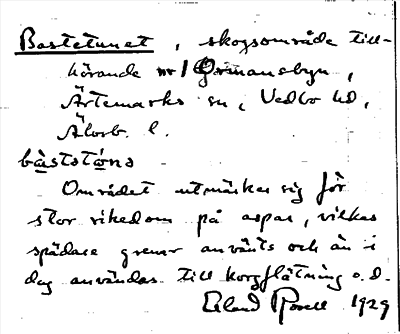 Bastetunet, skogsområde till-
hörande nr 1 Ormansbyn,
Ärtemarks sn, Vedbo hd,
Älvsb. l.
båststöna
Området utmärker sig för
stor rikedom på aspar, vilkas
spädare grenar använts och än i
dag användas till korgflätning o.d.
Erland Rosell 1929